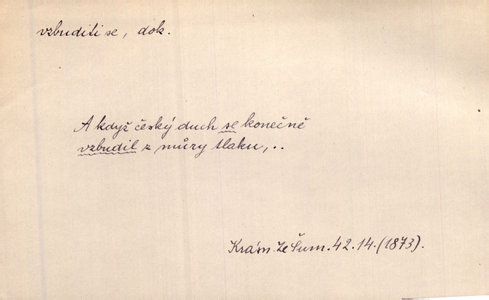 vzbuditi se, dok.
A když český duch se konečně
vzbudil z můry tlaku,..
Krám. Ze Šum. 42.14.(1873).